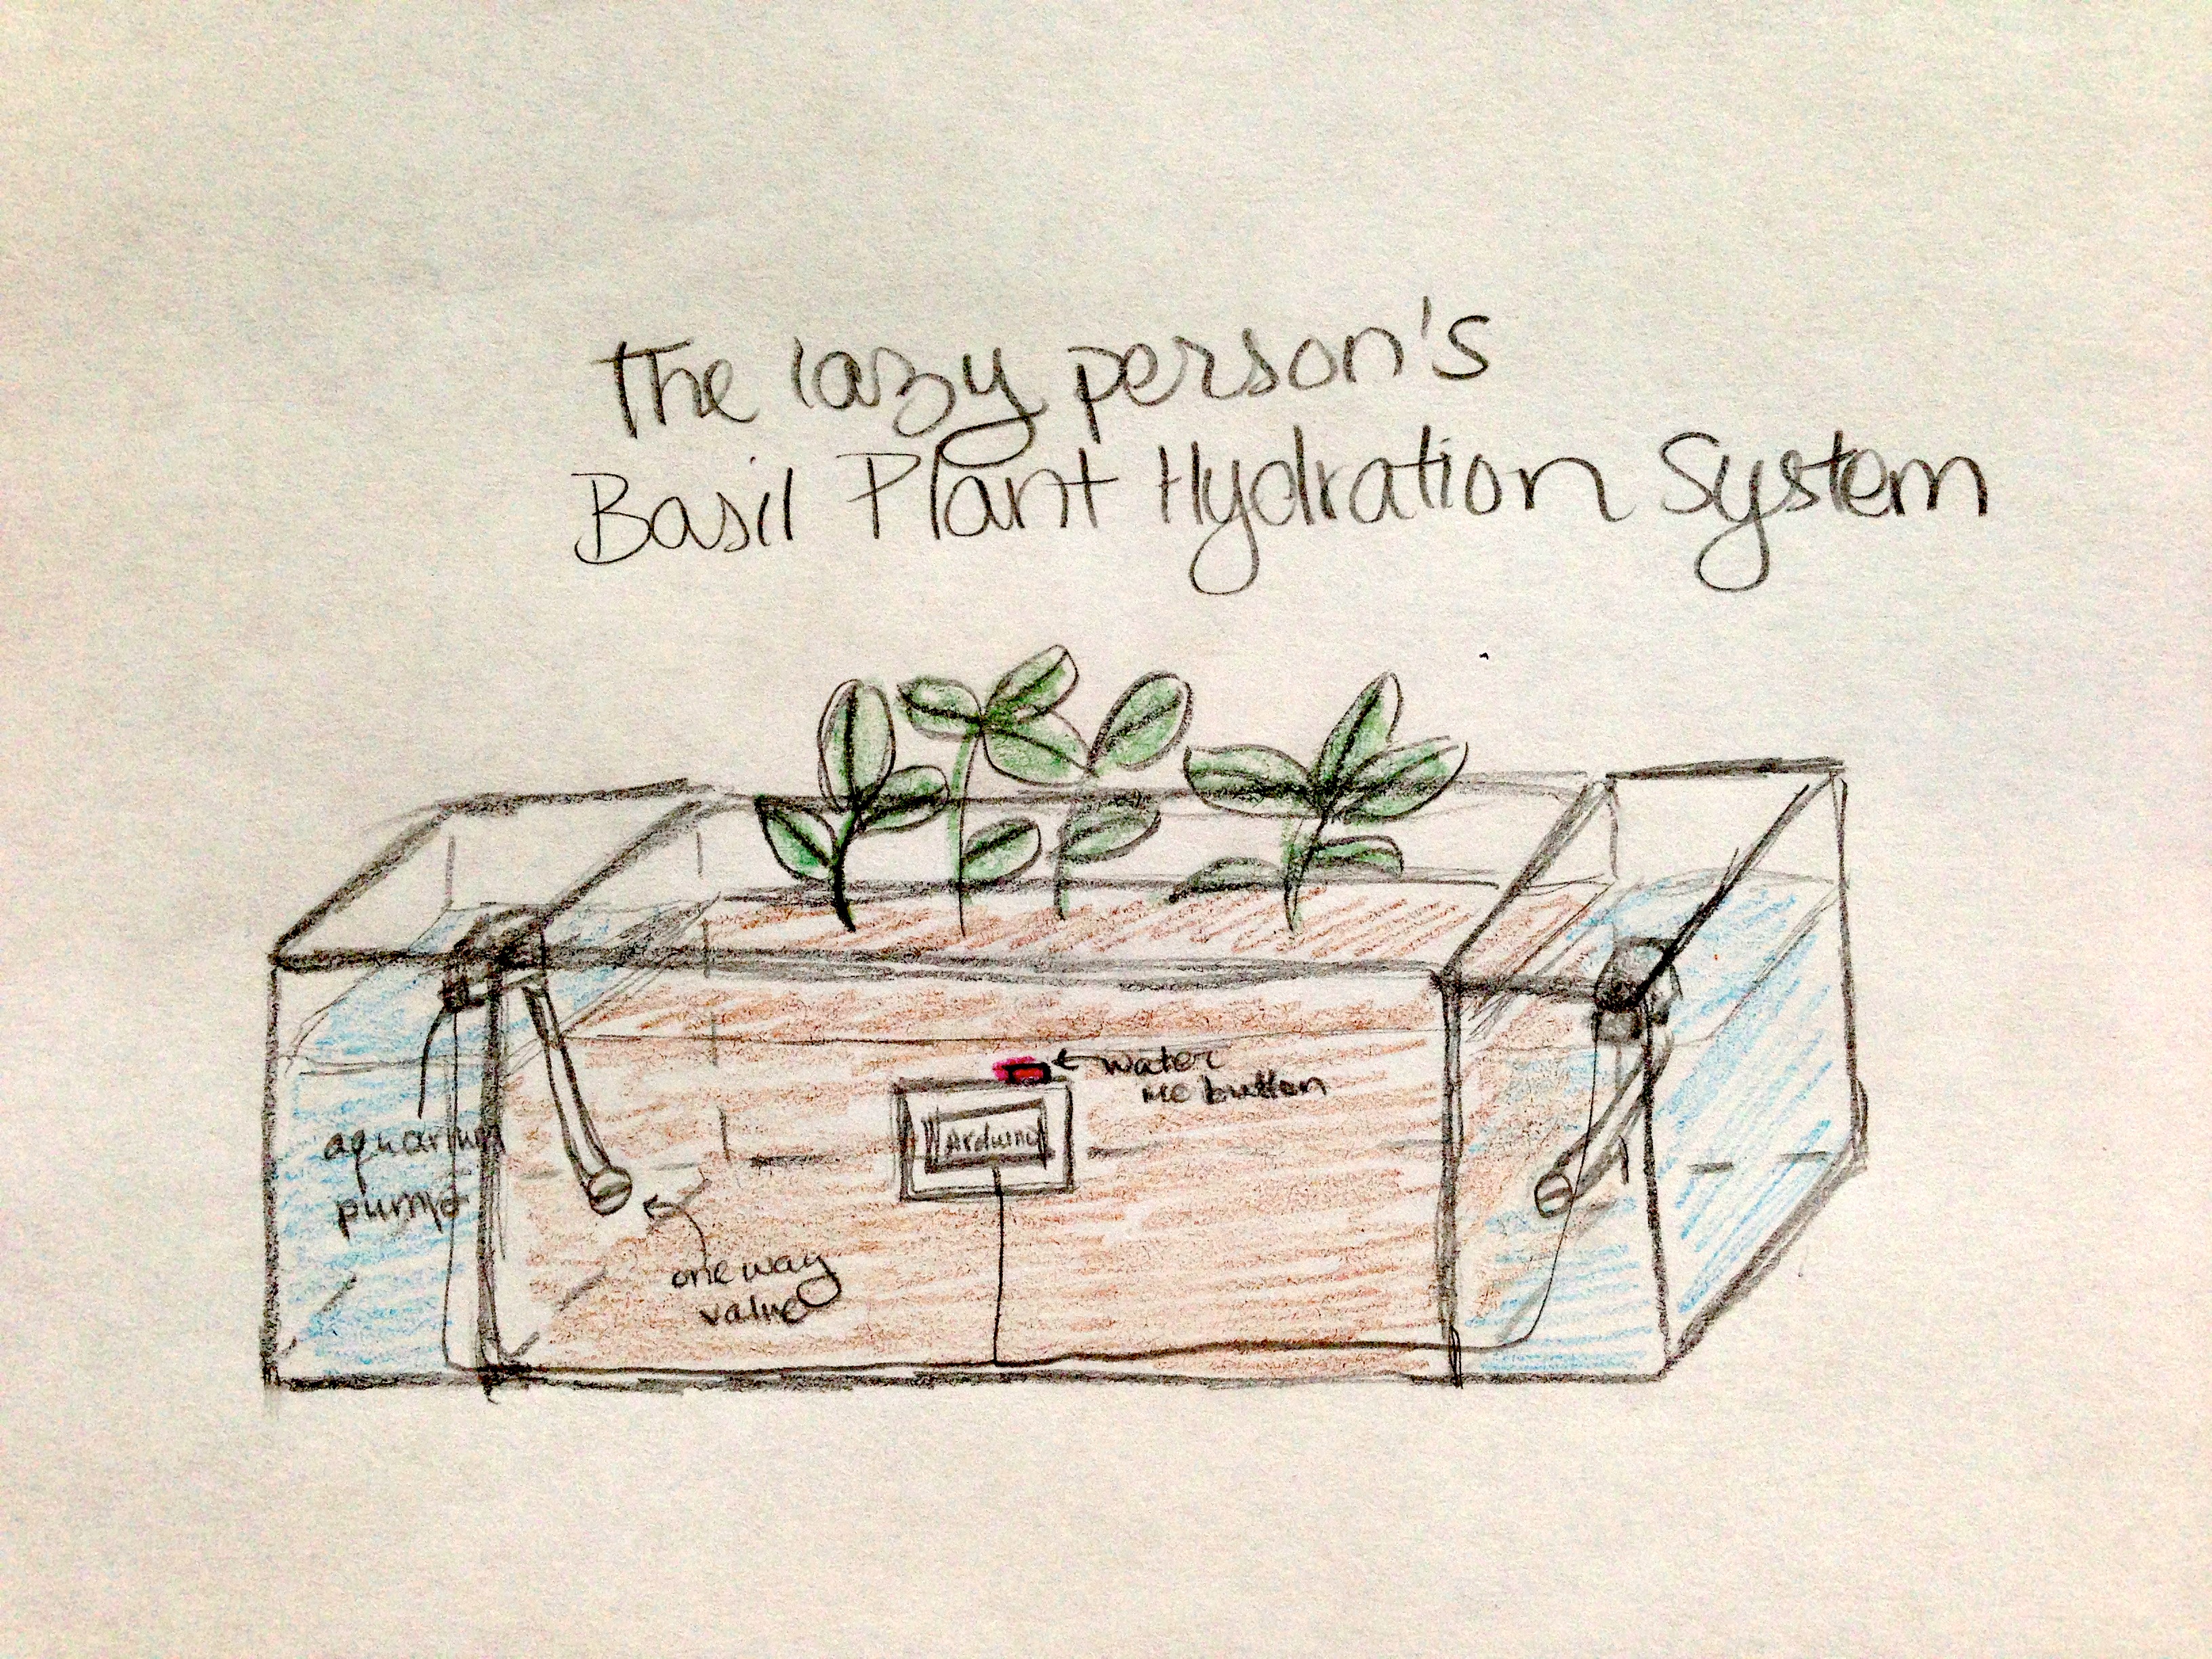 The lazy person's
Basil Plant Hydration System
water
me button
Arduino
aquarium
pump
one way
valve